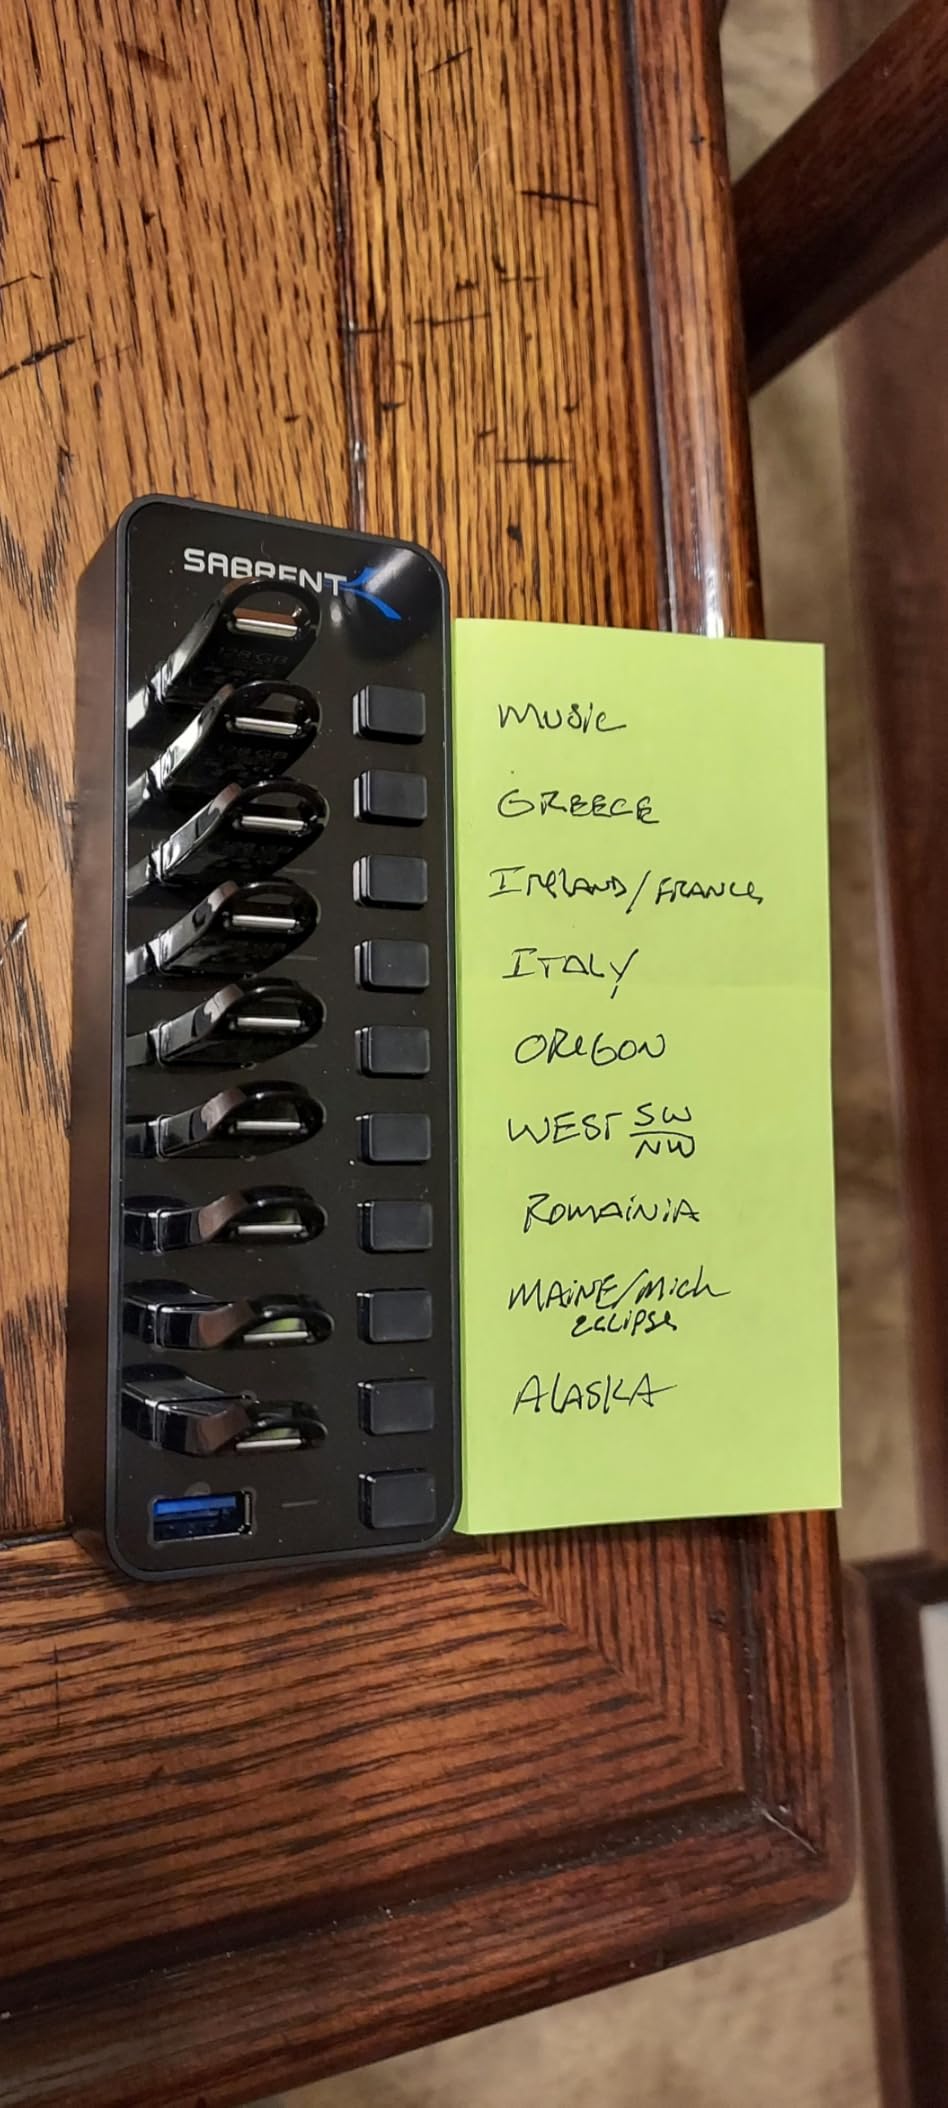 SABRENT
128GB
128GB
Music
GREECE
IRELAND/FRANCE
ITALY
OREGON
WEST SW/NW
ROMAINIA
MAINE/MICH
ECLIPSE
ALASKA